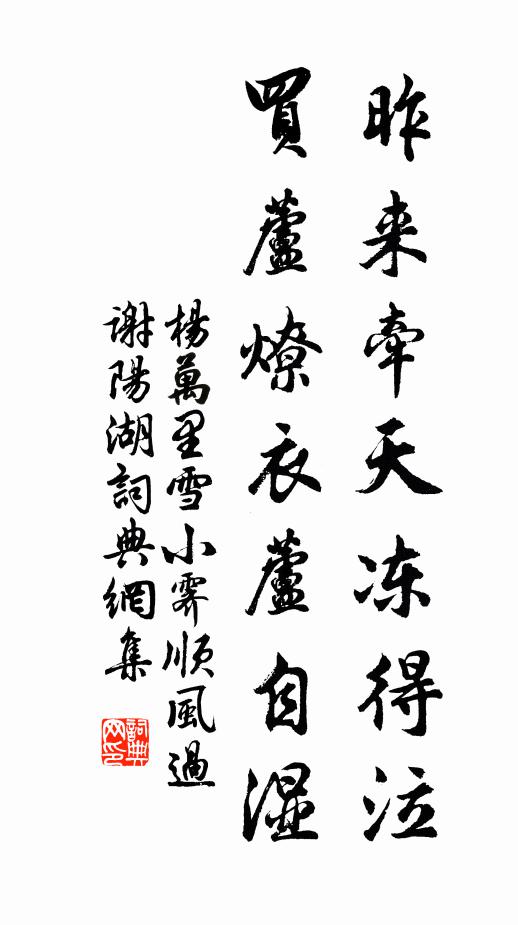 昨来牽天冻得泣
買蘆燎衣蘆自湿
楊萬里雪小霽順風過
谢陽湖詞典網集
詞典
网印